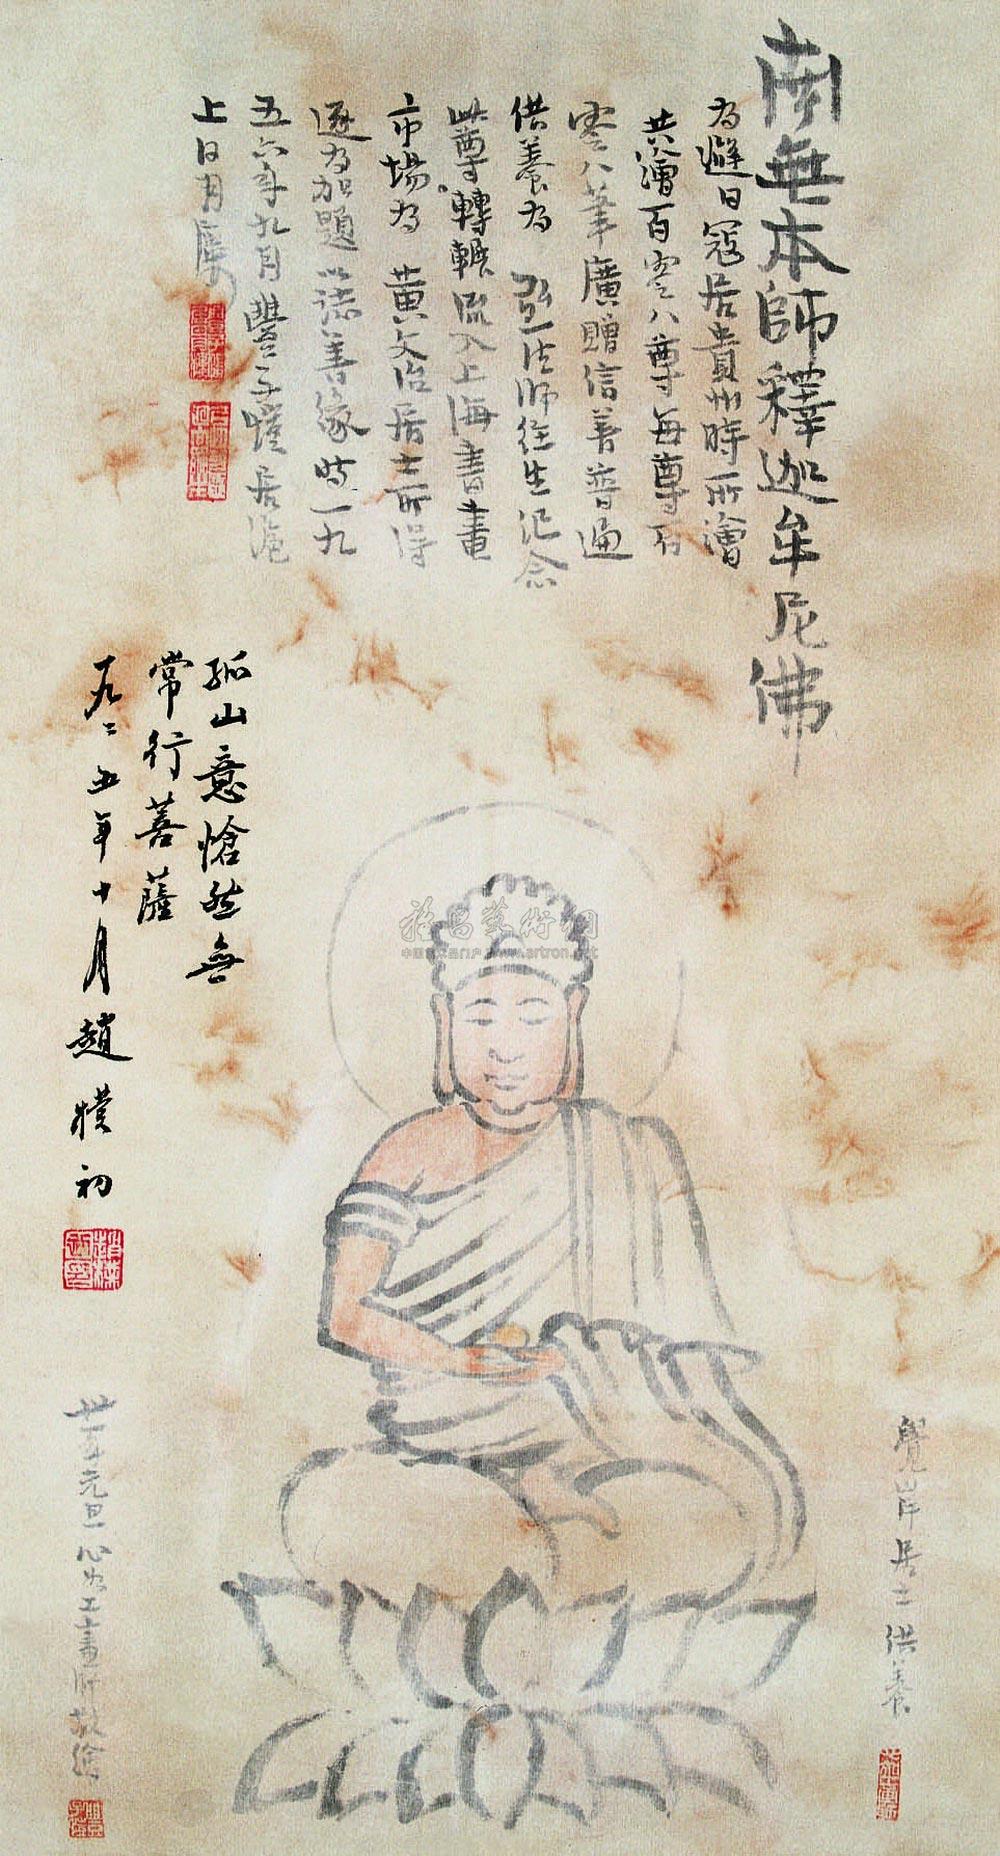 南無本師釋迦牟尼佛
為避日寇居貴州時所繪
共繪百零八尊每尊百
零八筆廣贈信善普遍
供養為 弘一法師往生紀念
此尊轉輾流入上海書畫
市場為 黃文治居士所得
遂為加題以誌善緣時一九
五六年九月豐子愷居滬
上日月廔
孤山意愴然無
常行菩薩
一九八五年十月趙樸初
覺岸居士供養
元旦心為工畫師敬繪